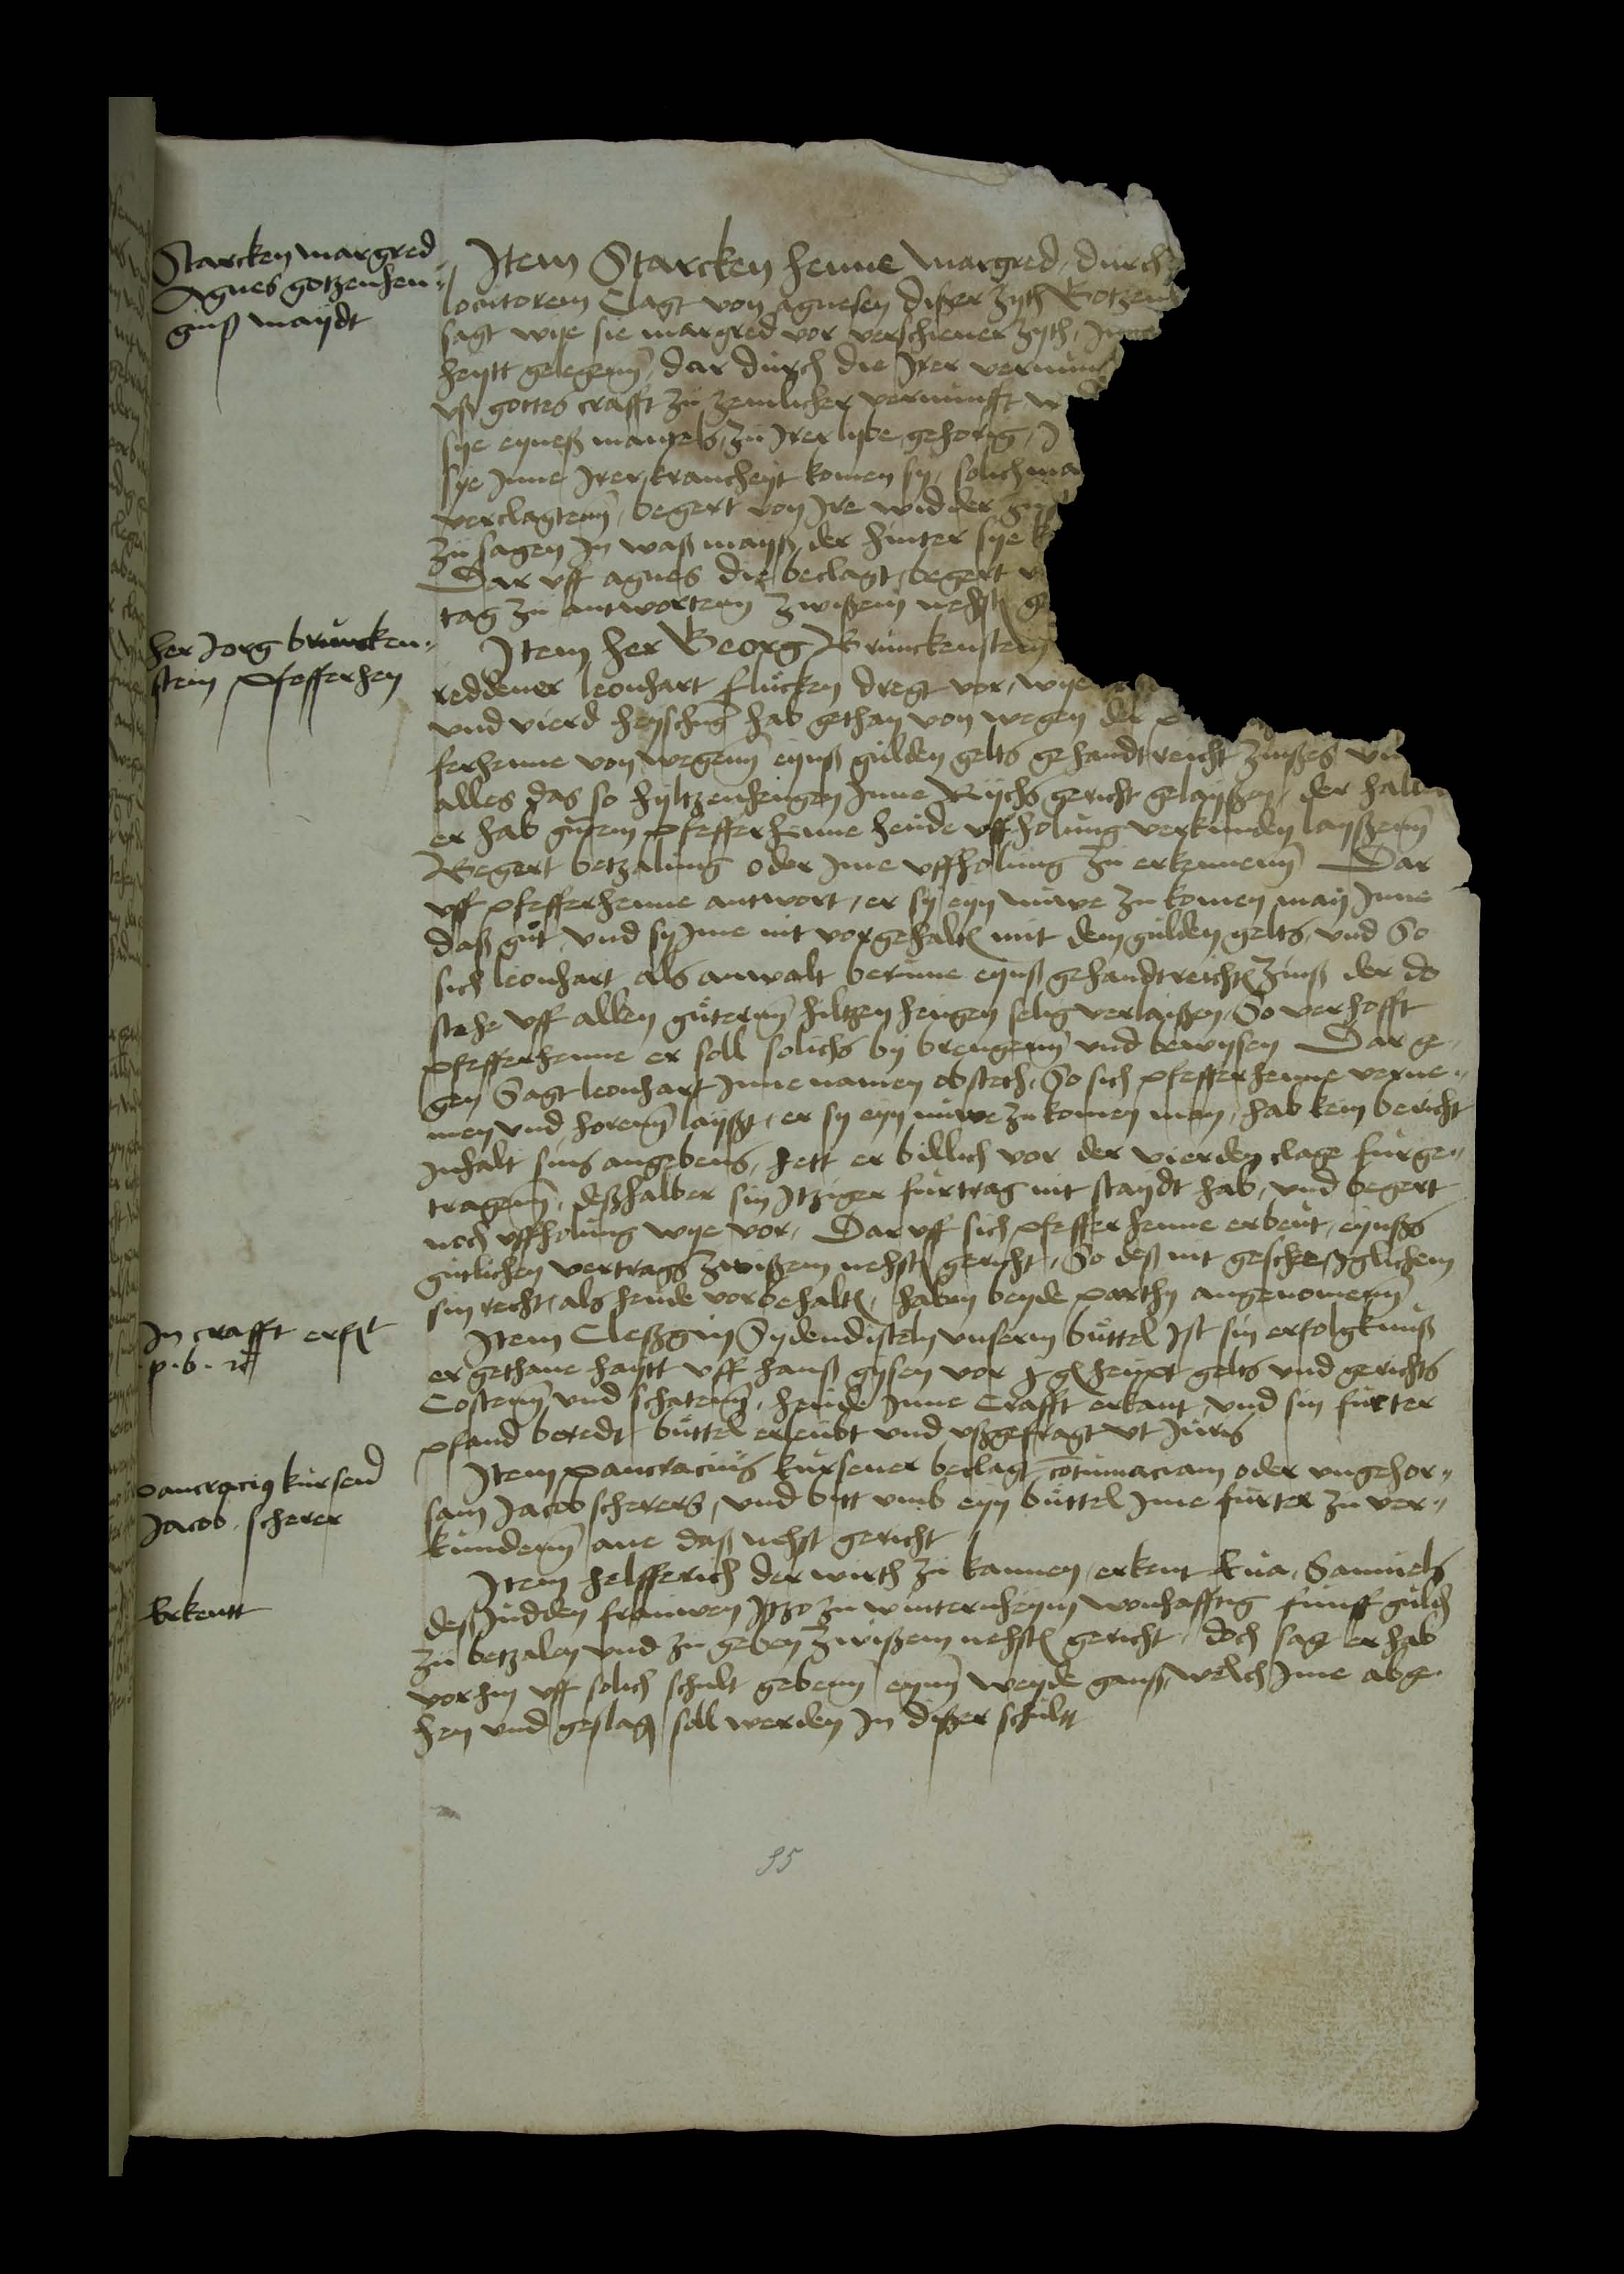 Starcken margred
Agnes gotzenhen-
gins maydt
Item Starcken henne margred, durch
locutorem Clagt von agnesen dißer zyth Gotzen
sagt wye sie margred vor verschiener zyth, Inne
heytt gelegenn, dar durch die Irer vernun
uß gottes crafft zu zemlicher vernunfft w
sye eyneß mantels, zu Irer lybe gehorig, I
sye Inne Irer kranckeyt komen sy, solich ma
verclagtenn, begert von Ire widder
zu sagen In waß mayß der hinter sye k
Dar uff agnes die beclagt, begert
tag zu antwortenn zwißem nehst g
her Jorg bruncken-
stein pfefferhen
Item her Georg Brunckensteyn
reddener leonhart flucken dregt vor, wye
und vierd heyschung hab gethan von wegen der p
ferhenne von wegenn eynß gulden gelts gehandtreicht zinßes vn
alles das so hyltzenhengen Inne Rychs gericht gelayßen, der halb
er hab gutem pfefferhenne heude uffholung verkunden layßenn
Begert betzalung oder Ime uffholung zu erkennenn Dar
uff pfefferhenne antwort, er sy eyn nuwe zu komen man Inne
daß gut, und sy Ime nit vorgehalt mit dem gulden gelts, und So
sich leonhart als anwalt berume eynß gehandtreicht zinß der do
stehe uff allen guternn hiltzen hengen selig verlaißen, So verhofft
pfefferhenne er soll solichs by brengenn und bewysen Dar ge-
gen Sagt leonhart Inne namen obstet, So sich pfefferhenne verne-
men und horenn layßt, er sy eyn nuwe zu komen man, hab kein bericht
Inhalt sins angebens, hett er billich vor der vierden clage furge-
tragenn, deßhalber sin Itziger furtrag nit staydt hab, und begert
noch uffholung wye vor, Dar uff sich pfeffer henne erbeut, eynßs
gutlichen vertrags zwißem nehst gericht, So deß nit geschee Iglichem
sin recht, als heude vorbehalt, haben beyde parthy angenomenn
In crafft erkt
p. b.
Item Cleßgin Sydendisteln unserm buttel Ist sin erfolgkniß
er gethane haytt uff hanß gysen vor heupt gelts und gerichts
Costenn und schatenn, heude Inne Crafft erkant, und sin furter
pfand beredt buttel erleubt und ußgefragt ut Juris
pancracius kursener
Jacob scherer
Item pancracius kursener beclagt, contumaciam oder ungehor-
sam Jacob scherers, und bitt umb eyn buttel Ime furter zu ver-
kundenn ane daß nehst gericht
Erkentt
Item helfferich der wirth zu kannen, erkent Eua, Samuels
deß Judden frauwen Itzo zu winternheym wonhafftig funff guld
zu betzalen und zu geben zwißem nehst gericht, doch sag er hab
vorhin uff solich schult gebenn eynn weyde ganß welch Ime abge-
hen und geslag soll werden In dißer schultt
95